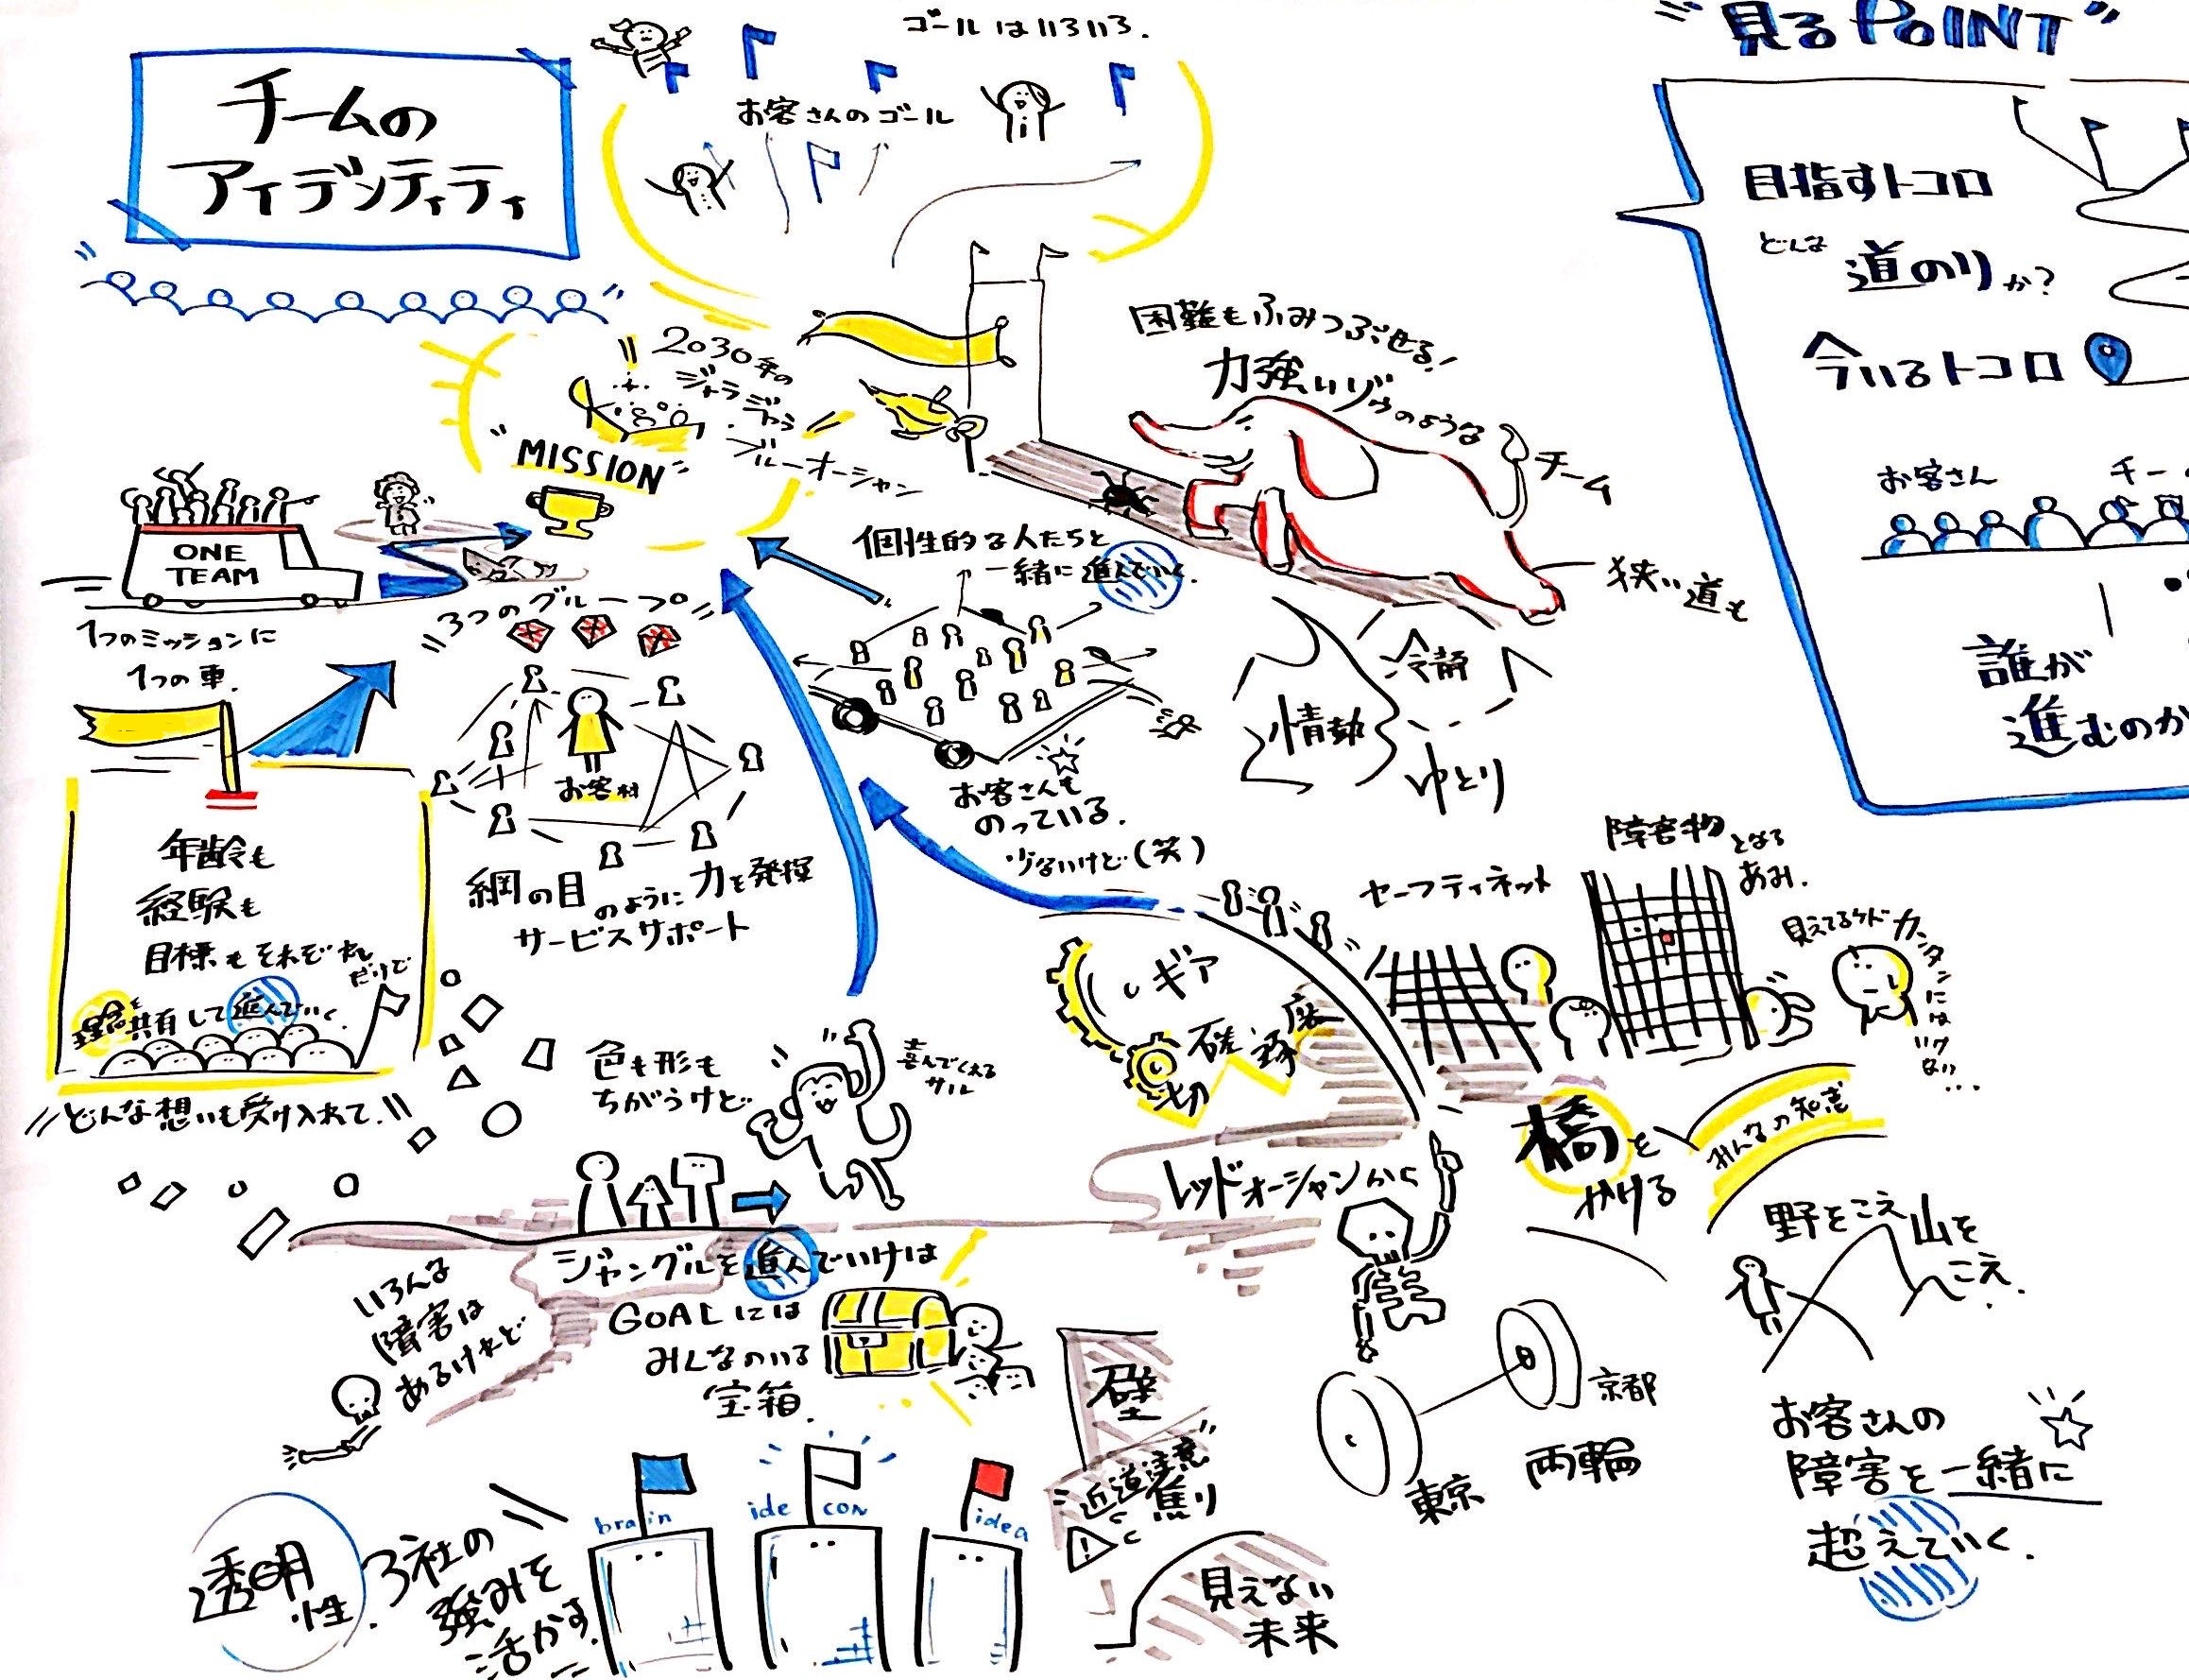 チームの
アイデンティティ
ゴールはいろいろ.
お客さんのゴール
"見るPOINT"
目指すトコロ
どんな
道のりか?
今いるトコロ
お客さん
チー
誰が
進むのか
2030年の
ブルーオーシャン
"MISSION"
困難もふみつぶせる!
力強いゾウのような
チーム
狭い道も
ONE
TEAM
1つのミッションに
1つの車.
3つのグループ
お客様
網の目のように力を発揮
サービスサポート
個性的な人たちと
一緒に進んでいく.
お客さんも
のっている.
少ないけど(笑)
冷静
情熱
ゆとり
年齢も
経験も
目標もそれぞれ
だけど
理念を共有して進んでいく.
どんな想いも受け入れて.!!
色も形も
ちがうけど
喜んでくれる
サル
ギア
切磋琢磨
セーフティネット
障害物となる
あみ.
見えてるケドカンタンにはいけない...
レッドオーシャンから
橋を
かける
みんなの知恵
野をこえ山を
こえ.
ジャングルを進んでいけば
GOALには
みんなのいる
宝箱.
いろんな
障害は
あるけれど
壁
近道注意
焦り
見えない
未来
京都
東京
両輪
お客さんの
障害を一緒に
超えていく.
透明性.
3社の
強みを
活かす.
brain
ide con
idea